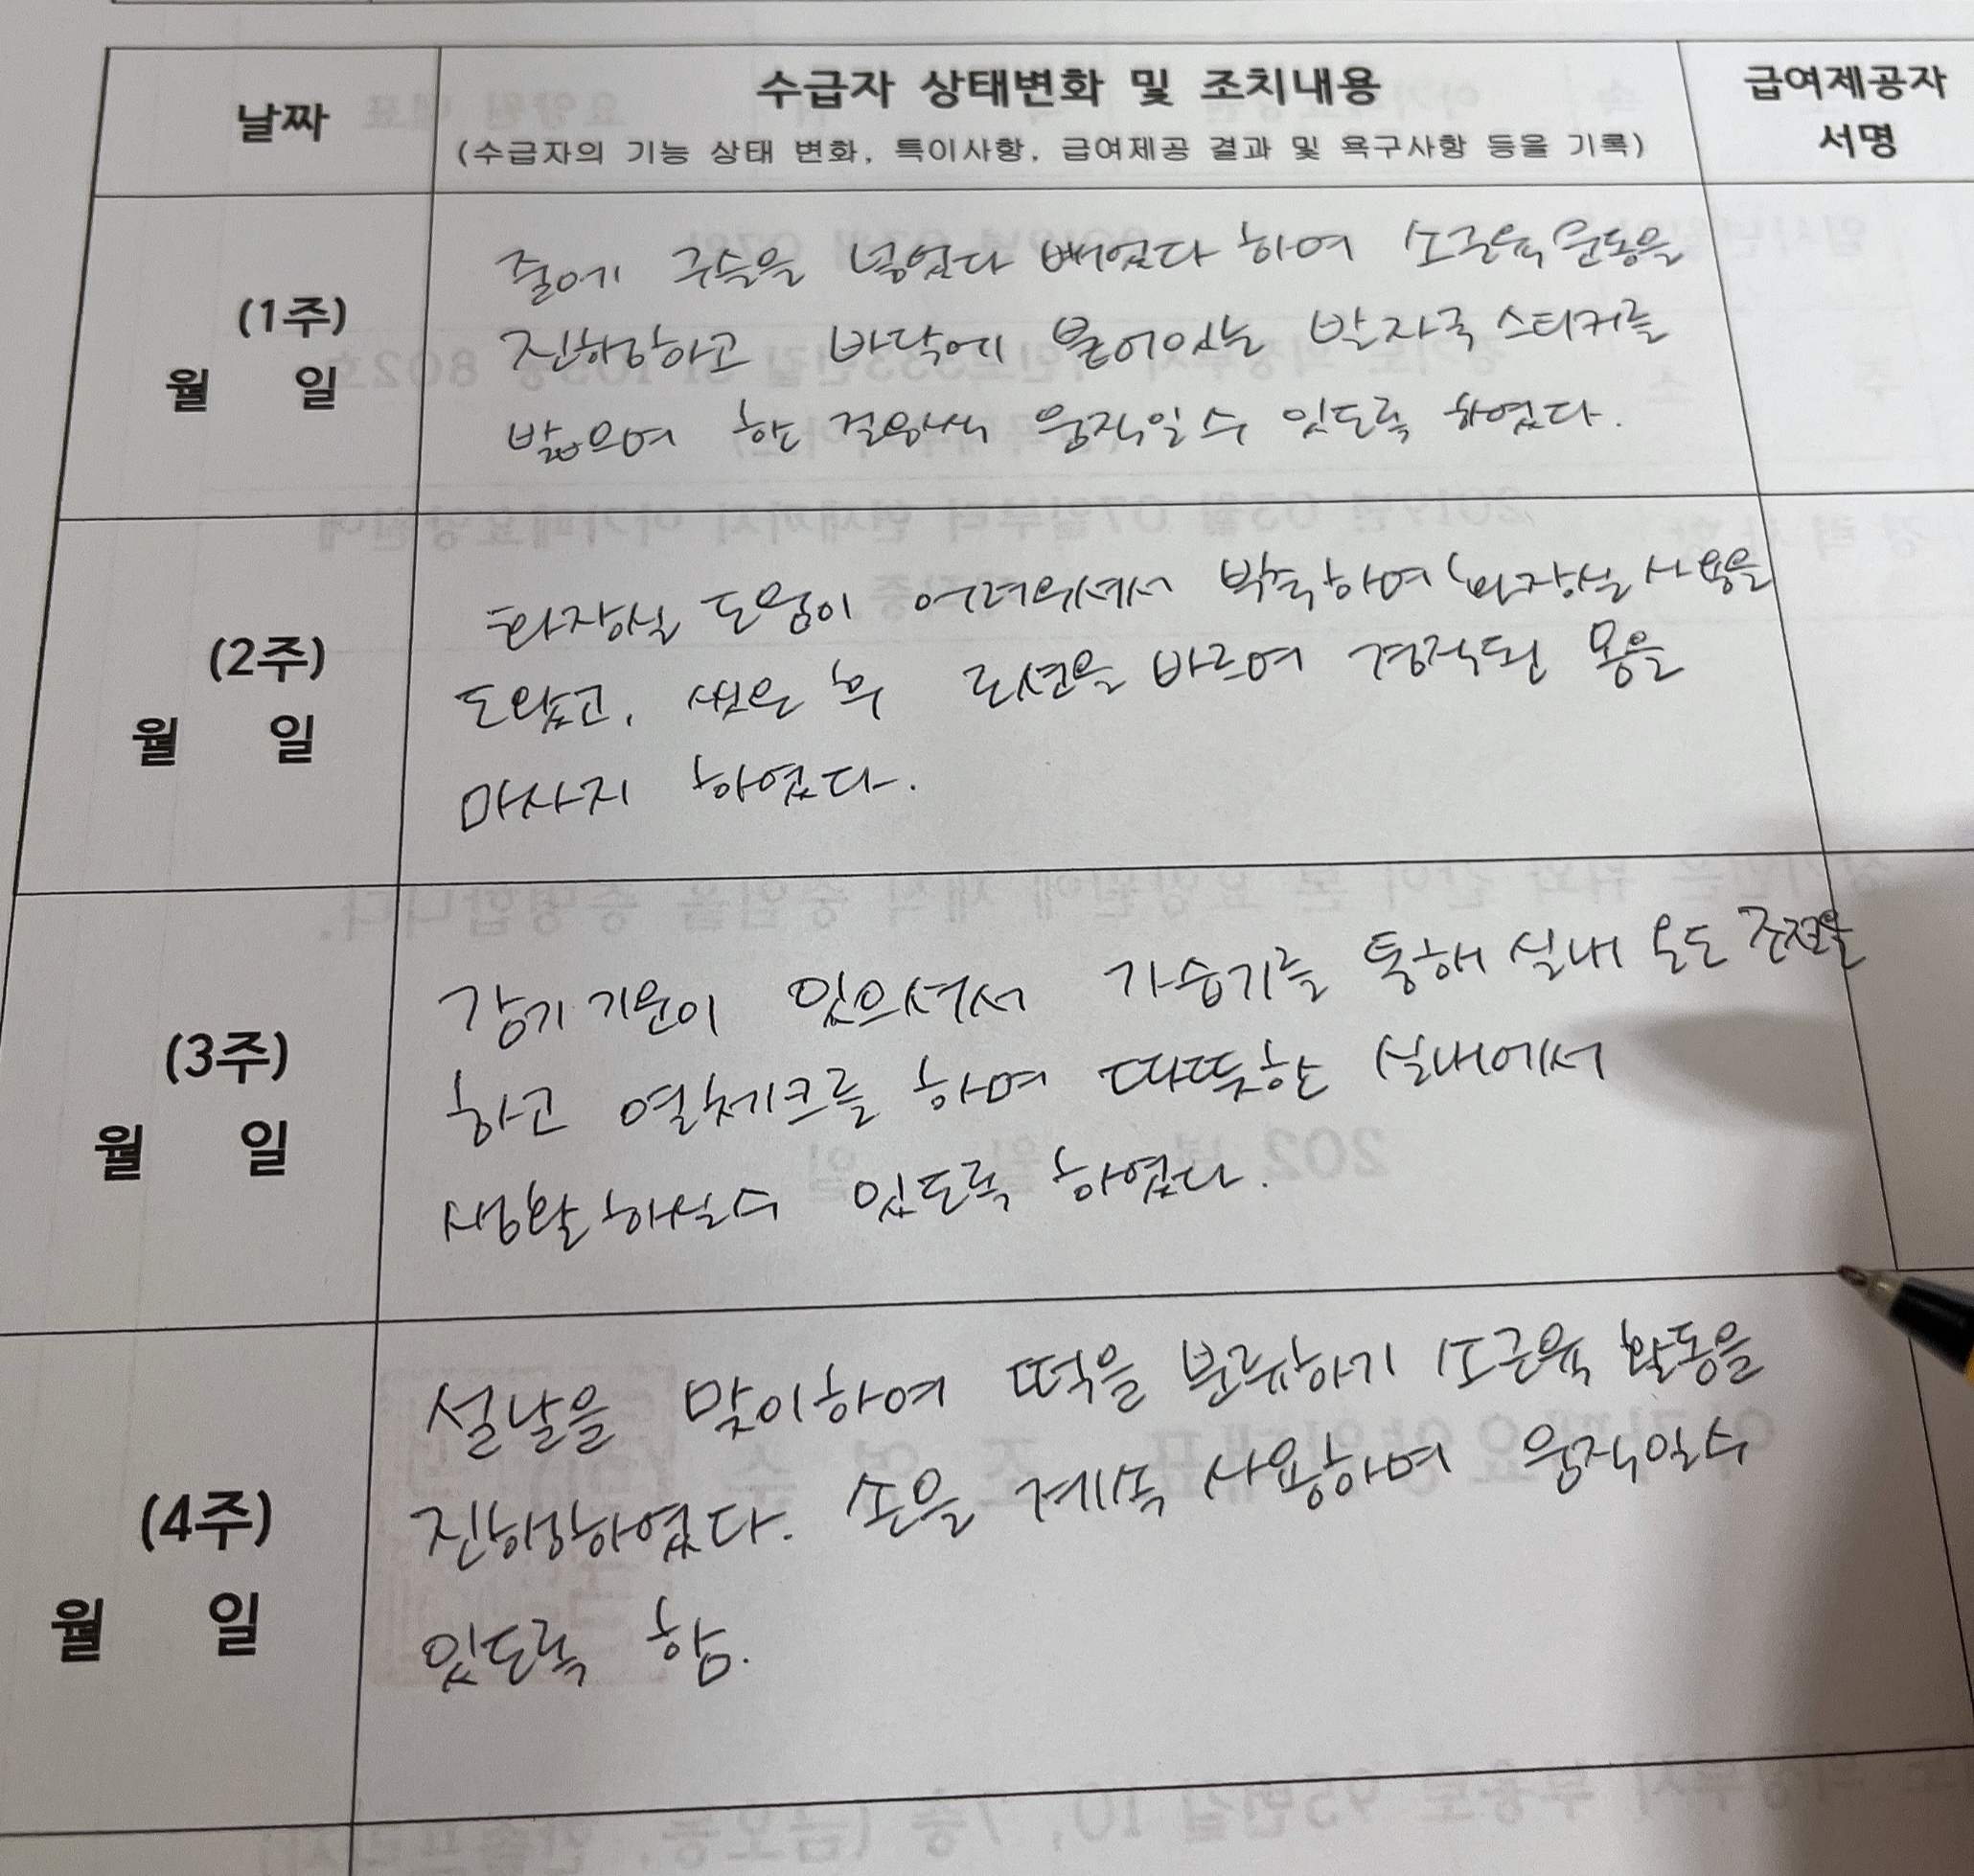 날짜
수급자 상태변화 및 조치내용
(수급자의 기능 상태 변화, 특이사항, 급여제공 결과 및 욕구사항 등을 기록)
급여제공자
서명
(1주)
월 일
줄에 구슬을 넣었다 빼었다 하여 소근육 운동을
진행하고 바닥에 붙어있는 발자국 스티커를
밟으며 한 걸음씩 움직일수 있도록 하였다.
(2주)
월 일
화장실 도움이 어려우셔서 부축하여 화장실 사용을
도왔고, 씻은 후 로션을 바르며 경직된 몸을
마사지 하였다.
(3주)
월 일
감기 기운이 있으셔서 가습기를 통해 실내 온도 조절을
하고 열체크를 하며 따뜻한 실내에서
생활하실수 있도록 하였다.
(4주)
월 일
설날을 맞이하여 떡을 분류하기 소근육 활동을
진행하였다. 손을 계속 사용하며 움직일수
있도록 함.